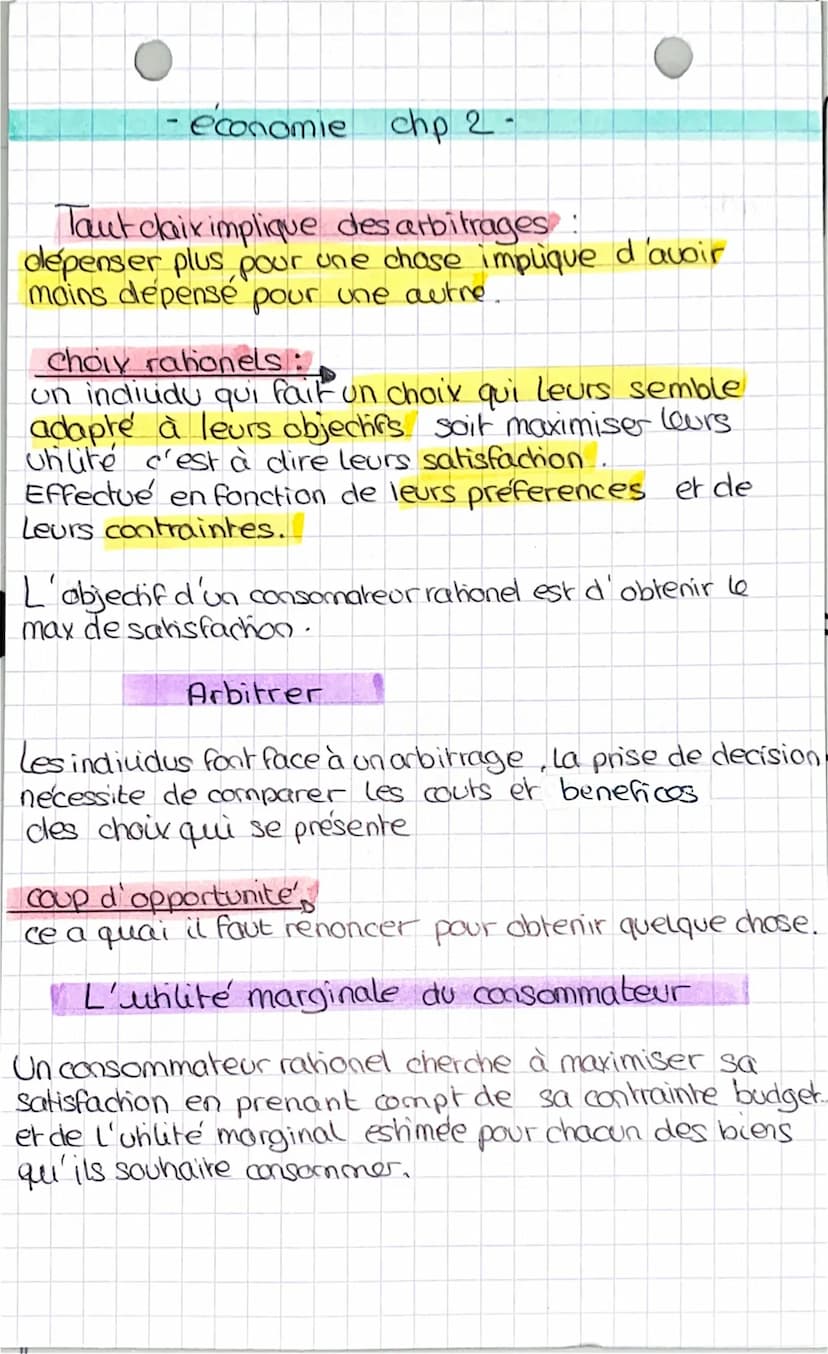 - économie chp 2 -
Tout choix implique des arbitrages :
dépenser plus pour une chose implique d'avoir
moins dépensé pour une autre.
choix rationels :
un individu qui fait un choix qui leurs semble
adapté à leurs objectifs soit maximiser leurs
utilité c'est à dire leurs satisfaction.
Effectué en fonction de leurs préferences et de
leurs contraintes.
L'objectif d'un consomateur rationel est d'obtenir le
max de satisfaction.
Arbitrer
Les individus font face à un arbitrage, la prise de decision
nécessite de comparer les couts et benefices
des choix qui se présente
coup d'opportunité
ce a quoi il faut renoncer pour obtenir quelque chose.
L'utilité marginale du consommateur
Un consommateur rationel cherche à maximiser sa
satisfaction en prenant compt de sa contrainte budget.
et de l'utilité marginal estimée pour chacun des biens
qu'ils souhaire consommer.